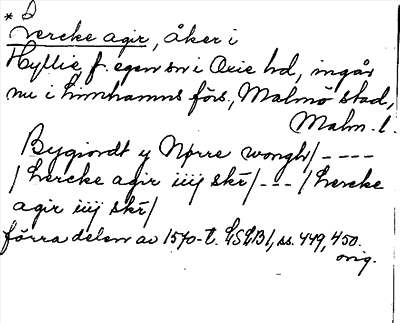 * D
Lercke agir, åker i
Hyllie, f. egen sn i Oxie hd, ingår
nu i Limhamns förs., Malmö stad,
Malm. l.
Bygiordt y Nørre wongh/ ----
/ Lercke agir iiij skr/ --- / Lercke
agir iiij skr/
förra delen av 1570-t. LSLB1, ss. 449, 450.
orig.